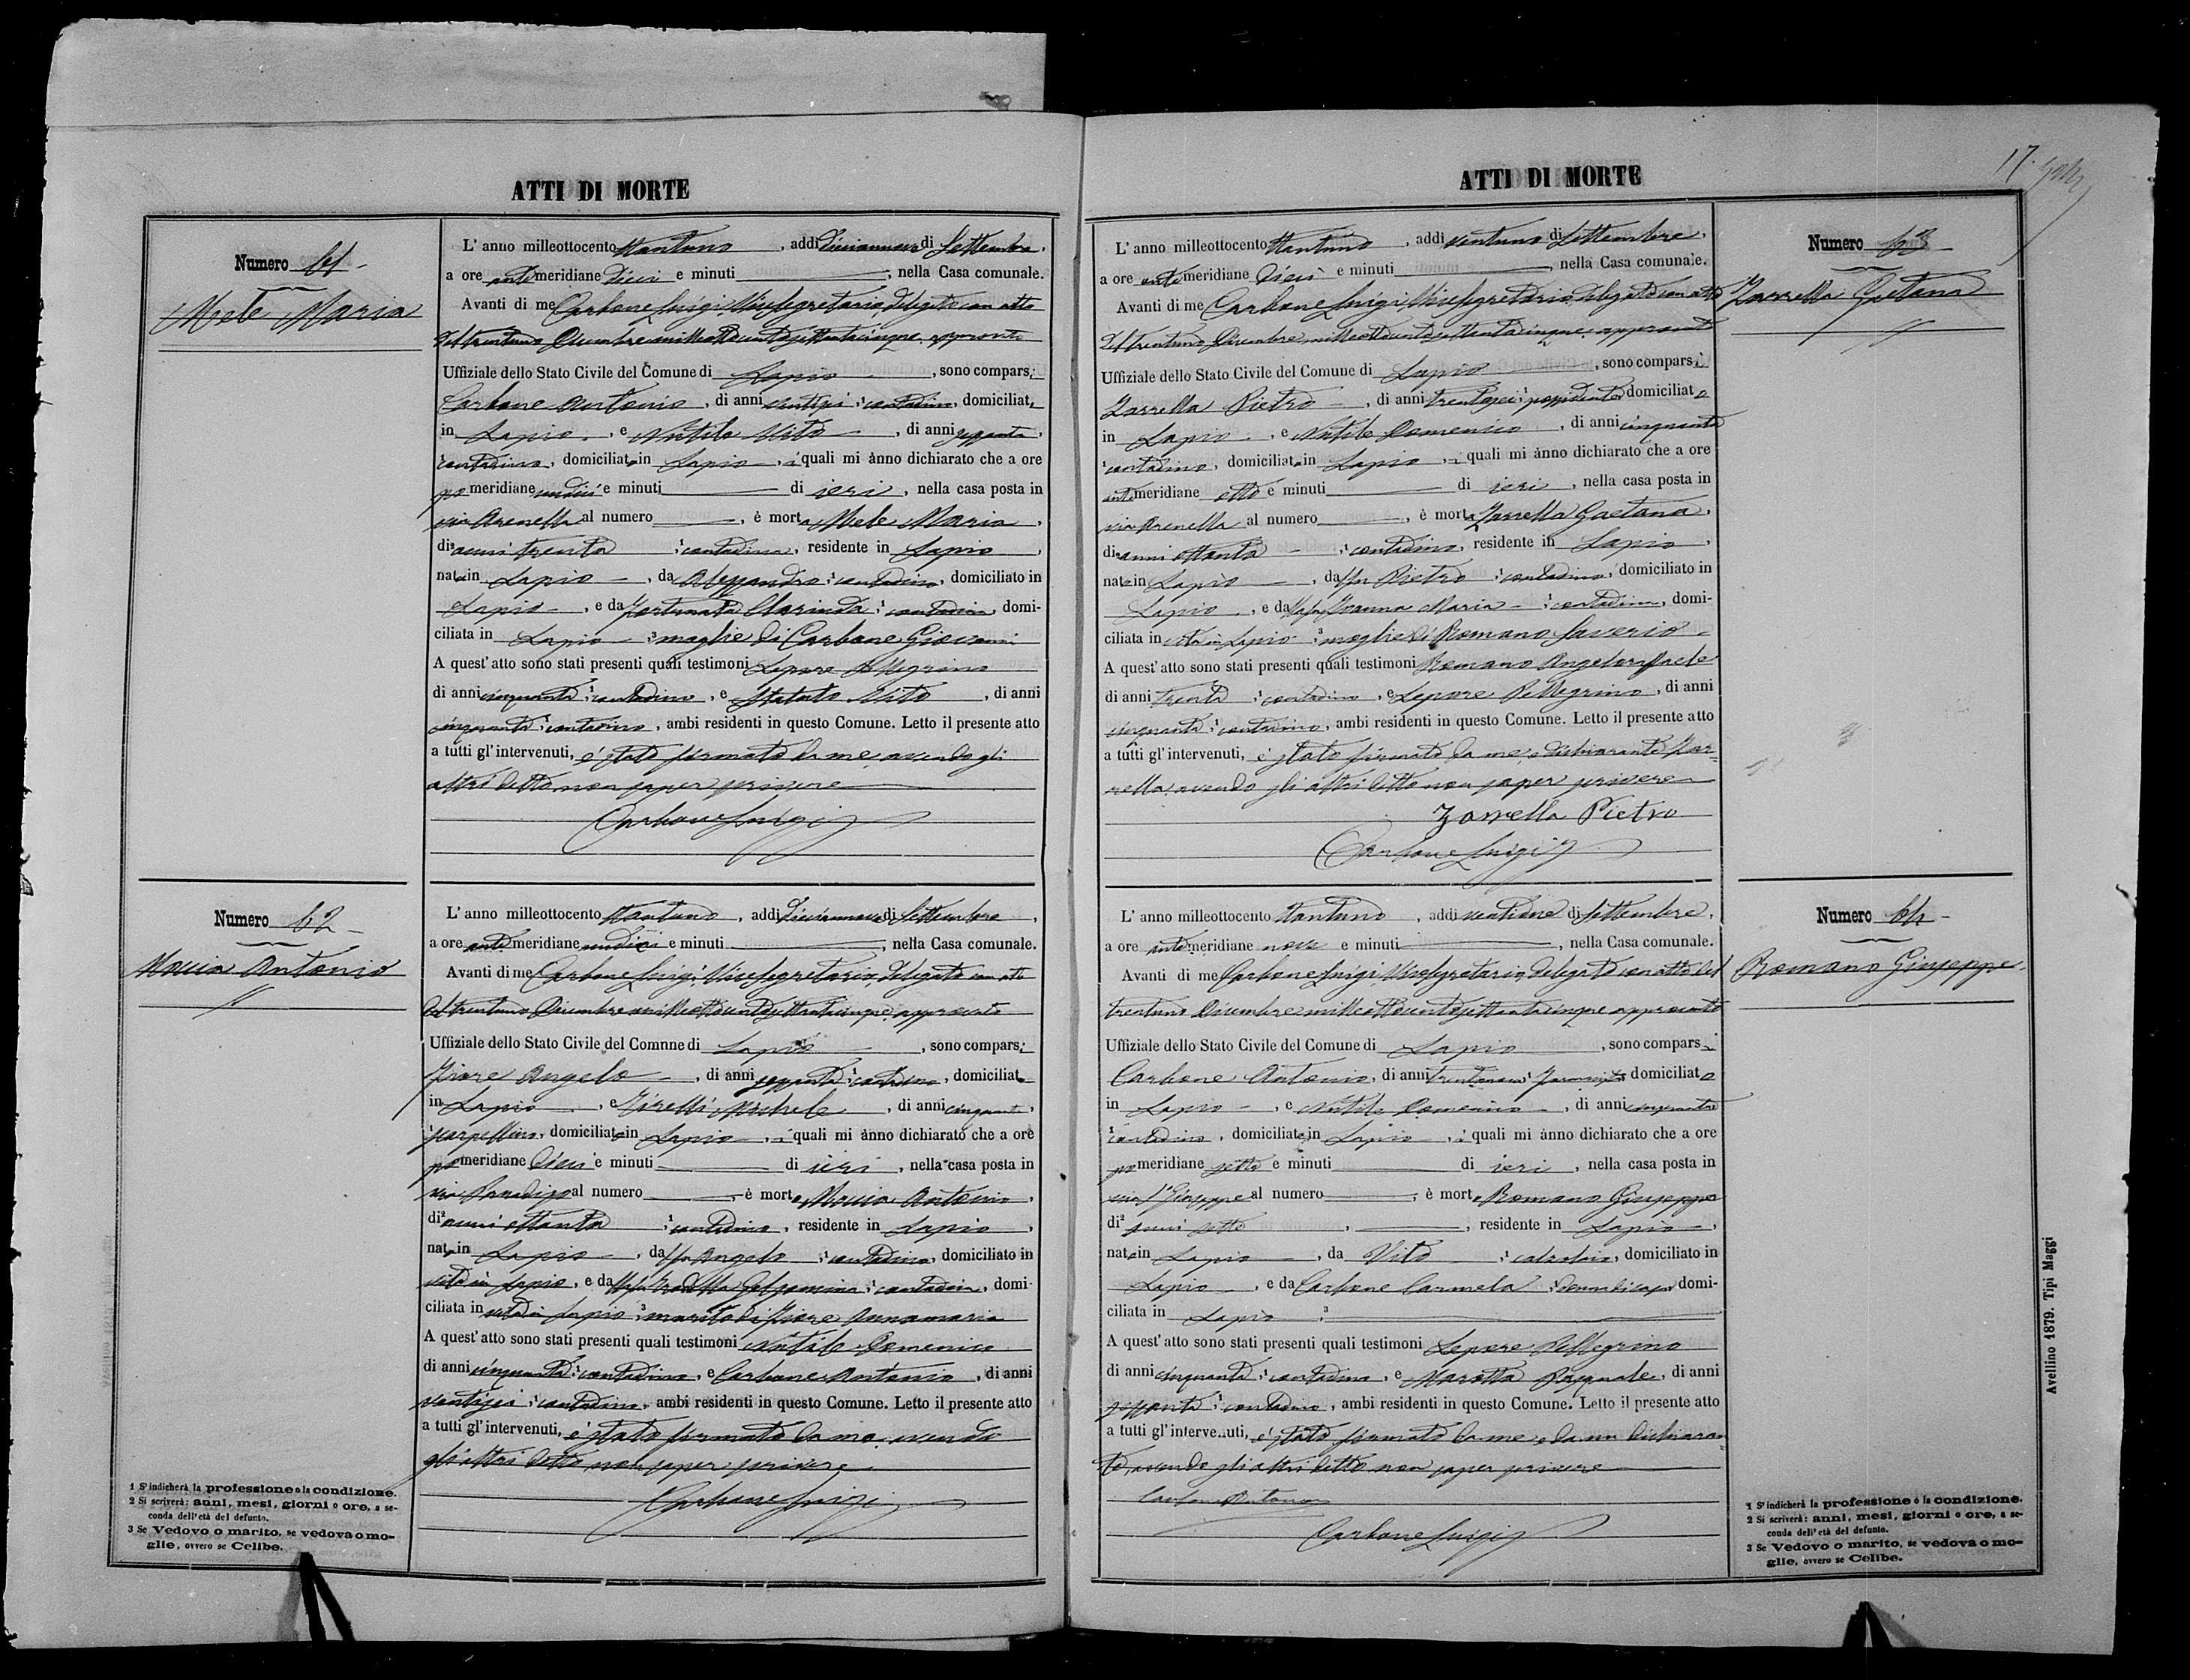 ATTI DI MORTE
Numero 61
Mele Maria
L' anno milleottocento ttantuno, addi diciannove di Settembre,
a ore antimeridiane dieci e minuti, nella Casa comunale.
Avanti di me Carbone Luigi Vice Segretario, delegato con atto
del trentuno Dicembre milleottocentosettantacinque approvato
Uffiziale dello Stato Civile del Comune di Lapio, sono comparsi
Carbone Antonio, di anni ventisei, contadino, domiciliato
in Lapio, e Nutile Vito, di anni sessanta,
contadino, domiciliato in Lapio, i quali mi ànno dichiarato che a ore
pomeridiane undici e minuti di ieri, nella casa posta in
via Arenella al numero, è morta Mele Maria,
di anni trenta, contadina, residente in Lapio,
nata in Lapio, da Alessandro, contadino, domiciliato in
Lapio, e da Fortunato Clorinda, contadina, domi-
ciliata in Lapio, moglie di Carbone Giovanni
A quest' atto sono stati presenti quali testimoni Lepore Pellegrino
di anni cinquanta, contadino, e Statuto Vito, di anni
cinquanta, contadino, ambi residenti in questo Comune. Letto il presente atto
a tutti gl' intervenuti, è stato firmato da me, avendo gli
altri detto non saper scrivere
Carbone Luigi
Numero 62
Moccia Antonio
L' anno milleottocento ttantuno, addi diciannove di Settembre,
a ore antimeridiane undici e minuti, nella Casa comunale.
Avanti di me Carbone Luigi Vice Segretario, delegato con atto
del trentuno Dicembre milleottocentosettantacinque approvato
Uffiziale dello Stato Civile del Comnne di Lapio, sono comparsi
Fiore Angelo, di anni sessanta, contadino, domiciliato
in Lapio, e Zirelli Michele, di anni cinquanta,
scarpellino, domiciliato in Lapio, i quali mi ànno dichiarato che a ore
pomeridiane dieci e minuti di ieri, nella casa posta in
via Paradiso al numero, è morto Moccia Antonio,
di anni ottanta, contadino, residente in Lapio,
nato in Lapio, da fu Angelo, contadino, domiciliato in
vita in Lapio, e da fu Gelsomina, contadina, domi-
ciliata in vita in Lapio, marito di Fiore Annamaria
A quest' atto sono stati presenti quali testimoni Nutile Domenico
di anni cinquanta, contadino, e Carbone Antonio, di anni
ventisei, contadino, ambi residenti in questo Comune. Letto il presente atto
a tutti gl' intervenuti, è stato firmato da me, avendo
gli altri detto non saper scrivere
Carbone Luigi
1 S' indicherà la professione o la condizione.
2 Si scriverà: anni, mesi, giorni o ore, a se-
conda dell' età del defunto.
3 Se Vedovo o marito, se vedova o mo-
glie, ovvero se Celibe.
ATTI DI MORTE
17
Numero 63
Zarrella Gaetana
L' anno milleottocento ttantuno, addi ventuno di Settembre,
a ore antimeridiane dieci e minuti, nella Casa comunale.
Avanti di me Carbone Luigi Vice Segretario delegato con atto
del trentuno Dicembre milleottocentosettantacinque approvato
Uffiziale dello Stato Civile del Comune di Lapio, sono comparsi
Zarrella Pietro, di anni trentasei, possidente domiciliato
in Lapio, e Nutile Domenico, di anni cinquanta
contadino, domiciliato in Lapio, i quali mi ànno dichiarato che a ore
antimeridiane otto e minuti di ieri, nella casa posta in
via Arenella al numero, è morta Zarrella Gaetana,
di anni ottanta, contadina, residente in Lapio,
nata in Lapio, da fu Pietro, contadino, domiciliato in
Lapio, e da fu Maria, contadina, domi-
ciliata in vita in Lapio, moglie di Romano Saverio
A quest' atto sono stati presenti quali testimoni Romano Angeloraffaele
di anni trenta, contadino, e Lepore Pellegrino, di anni
cinquanta, contadino, ambi residenti in questo Comune. Letto il presente atto
a tutti gl' intervenuti, è stato firmato da me, e dichiarante Zar-
rella, avendo gli altri detto non saper scrivere
Zarrella Pietro
Carbone Luigi
Numero 64
Romano Giuseppe
L' anno milleottocento ttantuno, addi ventinove di Settembre,
a ore antimeridiane nove e minuti, nella Casa comunale.
Avanti di me Carbone Luigi Vice Segretario, delegato con atto del
trentuno Dicembre milleottocentosettantacinque approvato
Uffiziale dello Stato Civile del Comune di Lapio, sono comparsi
Carbone Antonio, di anni trentanove, farmacista domiciliato
in Lapio, e Nutile Domenico, di anni cinquanta
contadino, domiciliato in Lapio, i quali mi ànno dichiarato che a ore
pomeridiane sette e minuti di ieri, nella casa posta in
via S. Giuseppe al numero, è morto Romano Giuseppe
di anni sette, residente in Lapio,
nato in Lapio, da Vito, calzolaio, domiciliato in
Lapio, e da Carbone Carmela, donna di casa, domi-
ciliata in Lapio
A quest' atto sono stati presenti quali testimoni Lepore Pellegrino
di anni cinquanta, contadino, e Marotta Pasquale, di anni
sessanta, contadino, ambi residenti in questo Comune. Letto il presente atto
a tutti gl' intervenuti, è stato firmato da me, e da un dichiaran-
te, avendo gli altri detto non saper scrivere
Carbone Antonio
Carbone Luigi
1 S' indicherà la professione o la condizione.
2 Si scriverà: anni, mesi, giorni o ore, a se-
conda dell' età del defunto.
3 Se Vedovo o marito, se vedova o mo-
glie, ovvero se Celibe.
Avellino 1879. Tipi Maggi